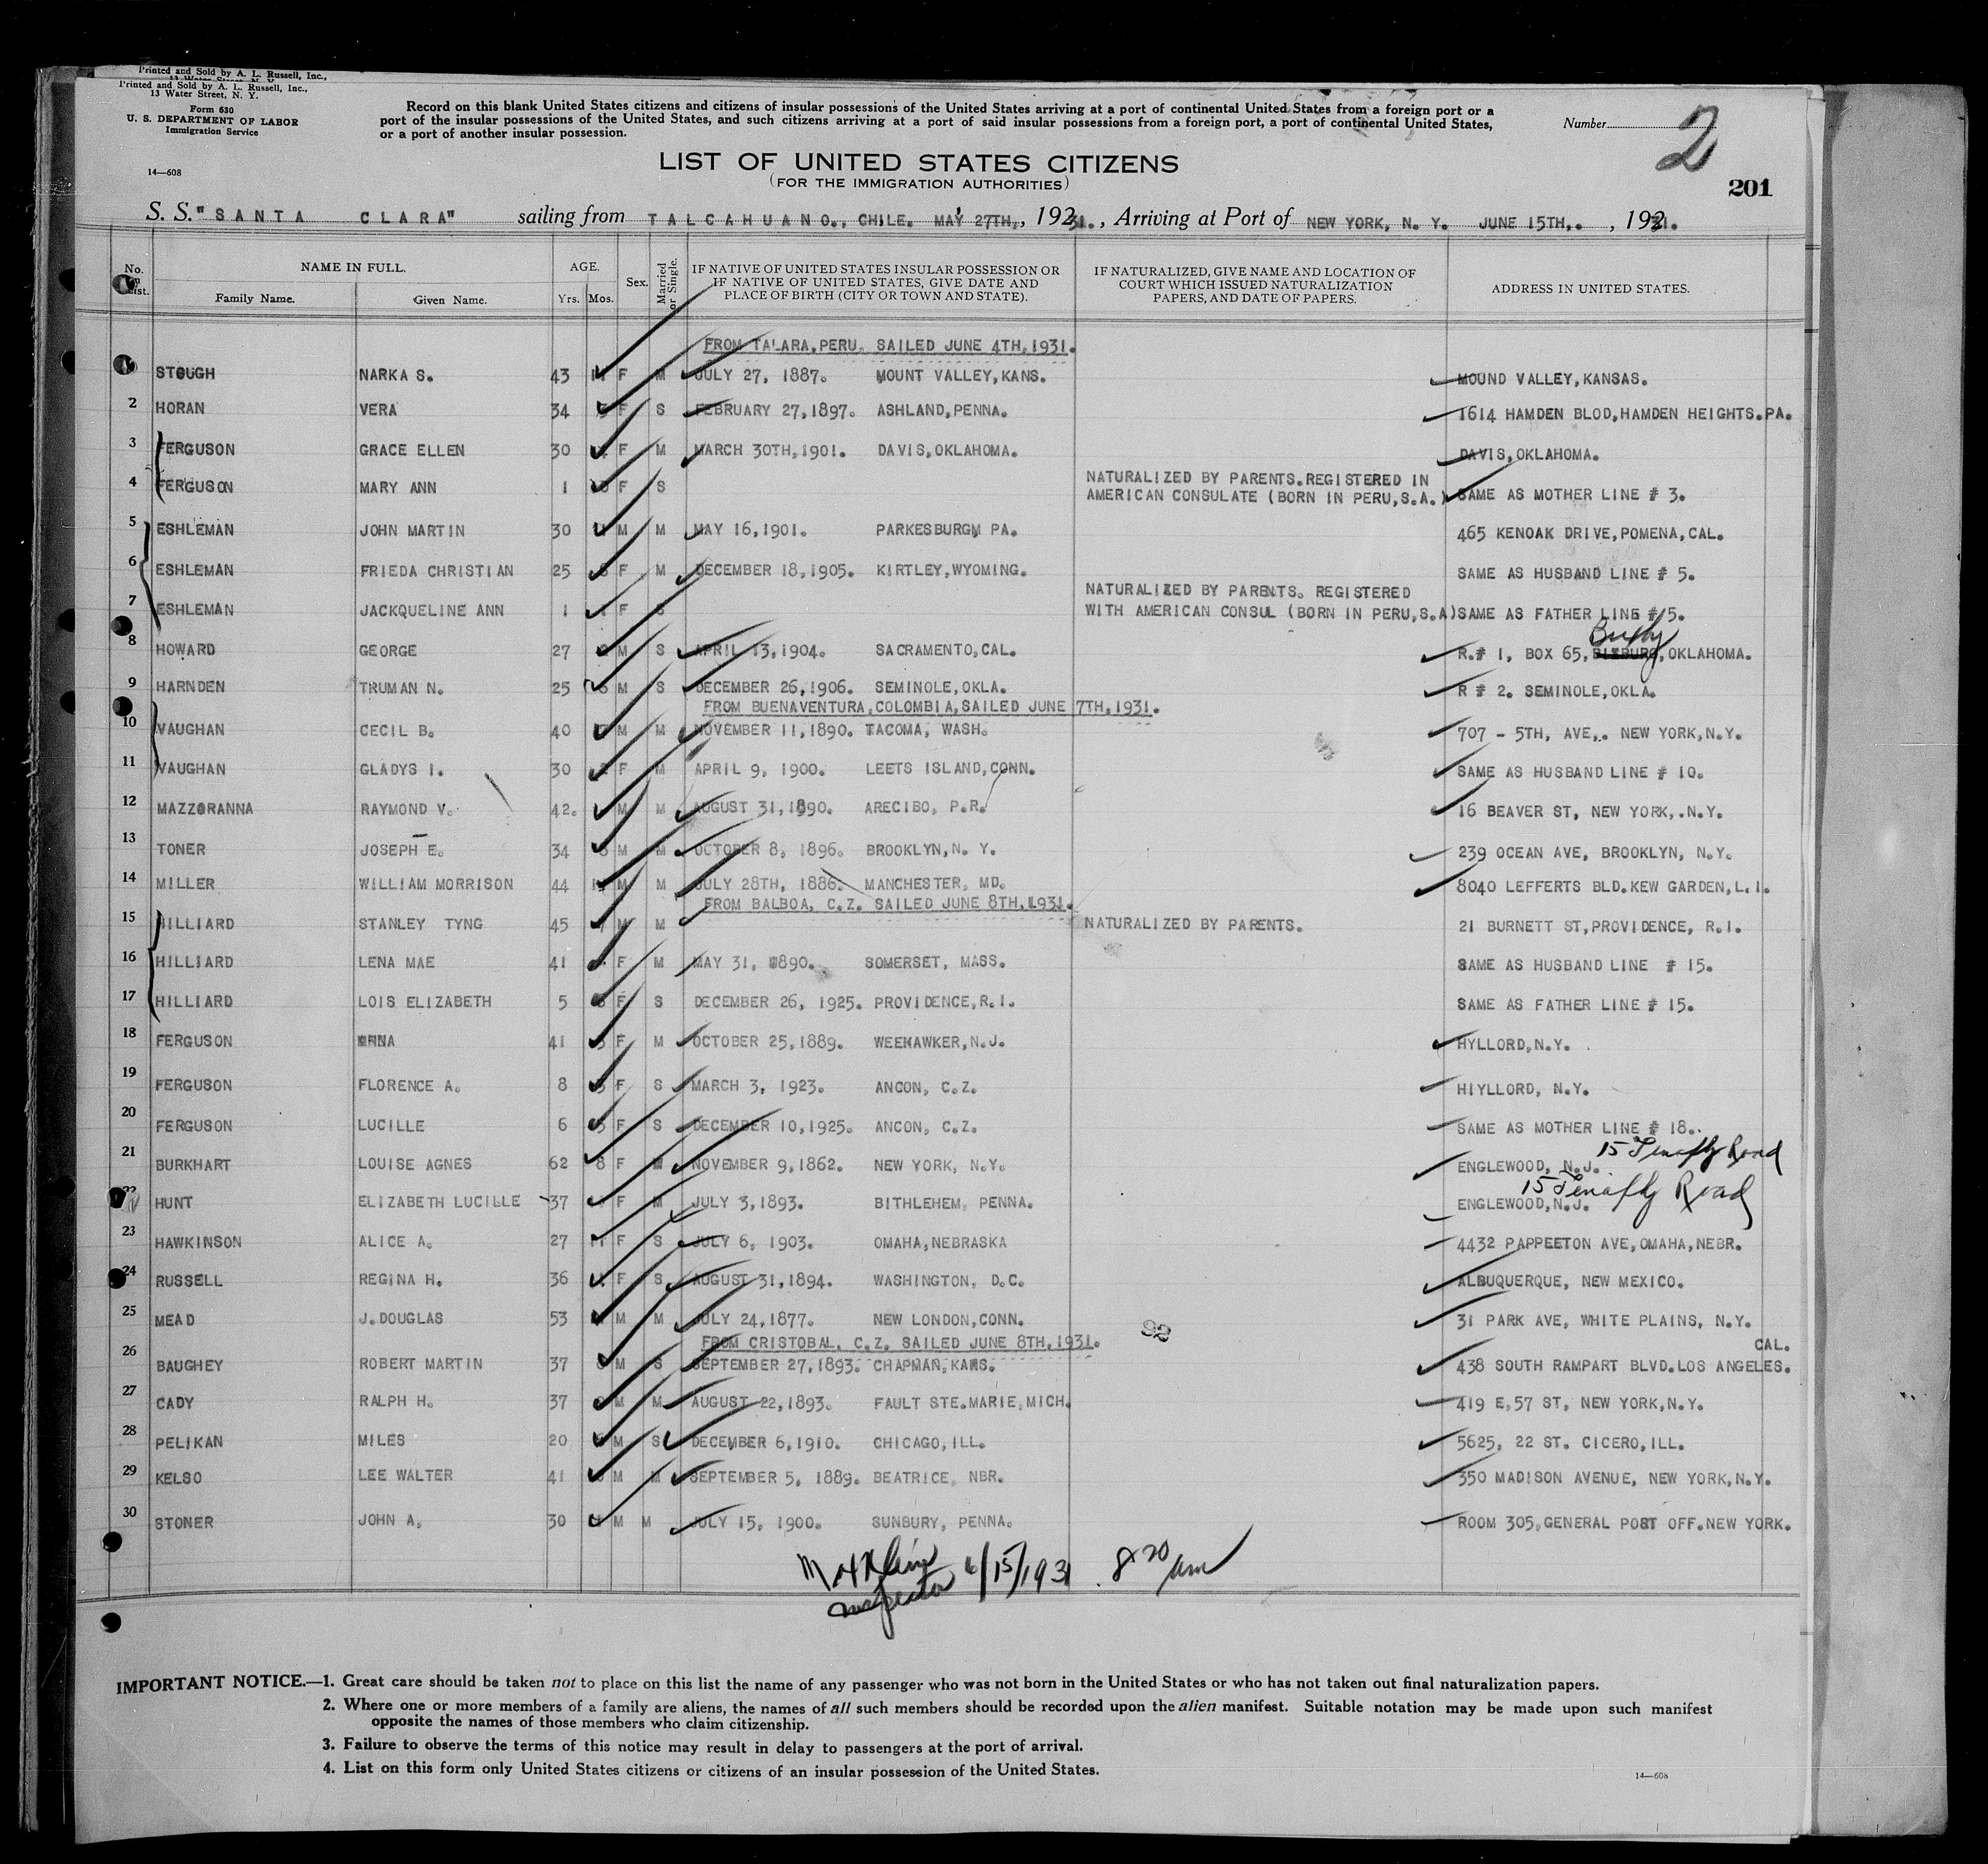 Printed and Sold by A. L. Russell, Inc.,
Printed and Sold by A. L. Russell, Inc.,
13 Water Street, N. Y.
Form 630
U. S. DEPARTMENT OF LABOR
Immigration Service
14—608
Record on this blank United States citizens and citizens of insular possessions of the United States arriving at a port of continental United States from a foreign port or a
port of the insular possessions of the United States, and such citizens arriving at a port of said insular possessions from a foreign port, a port of continental United States,
or a port of another insular possession.
Number 2
LIST OF UNITED STATES CITIZENS
(FOR THE IMMIGRATION AUTHORITIES)
201
S. S. "SANTA CLARA" sailing from TALCAHUANO., CHILE. MAY 27TH., 1931., Arriving at Port of NEW YORK, N. Y. JUNE 15TH,. , 1931.
No. on List. NAME IN FULL. AGE. Sex. Married or Single. IF NATIVE OF UNITED STATES INSULAR POSSESSION OR IF NATIVE OF UNITED STATES, GIVE DATE AND PLACE OF BIRTH (CITY OR TOWN AND STATE). IF NATURALIZED, GIVE NAME AND LOCATION OF COURT WHICH ISSUED NATURALIZATION PAPERS, AND DATE OF PAPERS. ADDRESS IN UNITED STATES.
Family Name. Given Name. Yrs. Mos.
FROM TALARA, PERU. SAILED JUNE 4TH, 1931.
STOUGH NARKA S. 43 F M JULY 27, 1887. MOUNT VALLEY, KANS. MOUND VALLEY, KANSAS.
2 HORAN VERA 34 F S FEBRUARY 27, 1897. ASHLAND, PENNA. 1614 HAMDEN BLOD, HAMDEN HEIGHTS. PA.
3 FERGUSON GRACE ELLEN 30 F M MARCH 30TH, 1901. DAVIS, OKLAHOMA. DAVIS, OKLAHOMA.
4 FERGUSON MARY ANN 1 F S NATURALIZED BY PARENTS. REGISTERED IN AMERICAN CONSULATE (BORN IN PERU, S.A.) SAME AS MOTHER LINE # 3.
5 ESHLEMAN JOHN MARTIN 30 M M MAY 16, 1901. PARKESBURGM PA. 465 KENOAK DRIVE, POMENA, CAL.
6 ESHLEMAN FRIEDA CHRISTIAN 25 F M DECEMBER 18, 1905. KIRTLEY, WYOMING. SAME AS HUSBAND LINE # 5.
7 ESHLEMAN JACKQUELINE ANN 1 F S NATURALIZED BY PARENTS. REGISTERED WITH AMERICAN CONSUL (BORN IN PERU, S.A) SAME AS FATHER LINE # 5.
8 HOWARD GEORGE 27 M S APRIL 13, 1904. SACRAMENTO, CAL. R.# 1, BOX 65, OKLAHOMA.
9 HARNDEN TRUMAN N. 25 M S DECEMBER 26, 1906. SEMINOLE, OKLA. R # 2. SEMINOLE, OKLA.
FROM BUENAVENTURA, COLOMBIA, SAILED JUNE 7TH, 1931.
10 VAUGHAN CECIL B. 40 M M NOVEMBER 11, 1890. TACOMA, WASH. 707 - 5TH, AVE,. NEW YORK, N.Y.
11 VAUGHAN GLADYS I. 30 F M APRIL 9, 1900. LEETS ISLAND, CONN. SAME AS HUSBAND LINE # 10.
12 MAZZORANNA RAYMOND V. 42. M M AUGUST 31, 1890. ARECIBO, P.R. 16 BEAVER ST, NEW YORK,.N.Y.
13 TONER JOSEPH E. 34 M M OCTOBER 8, 1896. BROOKLYN, N. Y. 239 OCEAN AVE, BROOKLYN, N.Y.
14 MILLER WILLIAM MORRISON 44 M M JULY 28TH, 1886. MANCHESTER, MD. 8040 LEFFERTS BLD. KEW GARDEN, L.I.
FROM BALBOA, C.Z. SAILED JUNE 8TH, 1931.
15 HILLIARD STANLEY TYNG 45 M M NATURALIZED BY PARENTS. 21 BURNETT ST, PROVIDENCE, R.I.
16 HILLIARD LENA MAE 41 F M MAY 31, 1890. SOMERSET, MASS. SAME AS HUSBAND LINE # 15.
17 HILLIARD LOIS ELIZABETH 5 F S DECEMBER 26, 1925. PROVIDENCE, R.I. SAME AS FATHER LINE # 15.
18 FERGUSON 41 F M OCTOBER 25, 1889. WEEHAWKER, N.J. HYLLORD, N.Y.
19 FERGUSON FLORENCE A. 8 F S MARCH 3, 1923. ANCON, C.Z. HIYLLORD, N.Y.
20 FERGUSON LUCILLE 6 F S DECEMBER 10, 1925. ANCON, C.Z. SAME AS MOTHER LINE # 18..
21 BURKHART LOUISE AGNES 62 8 F NOVEMBER 9, 1862. NEW YORK, N.Y. ENGLEWOOD, N.J. 15 Tenafly Road
HUNT ELIZABETH LUCILLE 37 F M JULY 3, 1893. BITHLEHEM, PENNA. ENGLEWOOD, N.J. 15 Tenafly Road
23 HAWKINSON ALICE A. 27 11 F S JULY 6, 1903. OMAHA, NEBRASKA 4432 PAPPEETON AVE, OMAHA, NEBR.
24 RUSSELL REGINA H. 36 F S AUGUST 31, 1894. WASHINGTON, D.C. ALBUQUERQUE, NEW MEXICO.
25 MEAD J. DOUGLAS 53 M M JULY 24, 1877. NEW LONDON, CONN. 31 PARK AVE, WHITE PLAINS, N.Y.
FROM CRISTOBAL, C.Z. SAILED JUNE 8TH, 1931.
26 BAUGHEY ROBERT MARTIN 37 M S SEPTEMBER 27, 1893. CHAPMAN, KANS. 438 SOUTH RAMPART BLVD. LOS ANGELES. CAL.
27 CADY RALPH H. 37 M M AUGUST 22, 1893. FAULT STE. MARIE, MICH. 419 E. 57 ST, NEW YORK, N.Y.
28 PELIKAN MILES 20 M S DECEMBER 6, 1910. CHICAGO, ILL. 5625, 22 ST. CICERO, ILL.
29 KELSO LEE WALTER 41 M M SEPTEMBER 5, 1889. BEATRICE, NBR. 350 MADISON AVENUE, NEW YORK, N.Y.
30 STONER JOHN A. 30 M M JULY 15, 1900. SUNBURY, PENNA. ROOM 305, GENERAL POST OFF. NEW YORK.
6/15/1931 8 20 am
Inspector
IMPORTANT NOTICE.—1. Great care should be taken not to place on this list the name of any passenger who was not born in the United States or who has not taken out final naturalization papers.
2. Where one or more members of a family are aliens, the names of all such members should be recorded upon the alien manifest. Suitable notation may be made upon such manifest
opposite the names of those members who claim citizenship.
3. Failure to observe the terms of this notice may result in delay to passengers at the port of arrival.
4. List on this form only United States citizens or citizens of an insular possession of the United States.
14—608